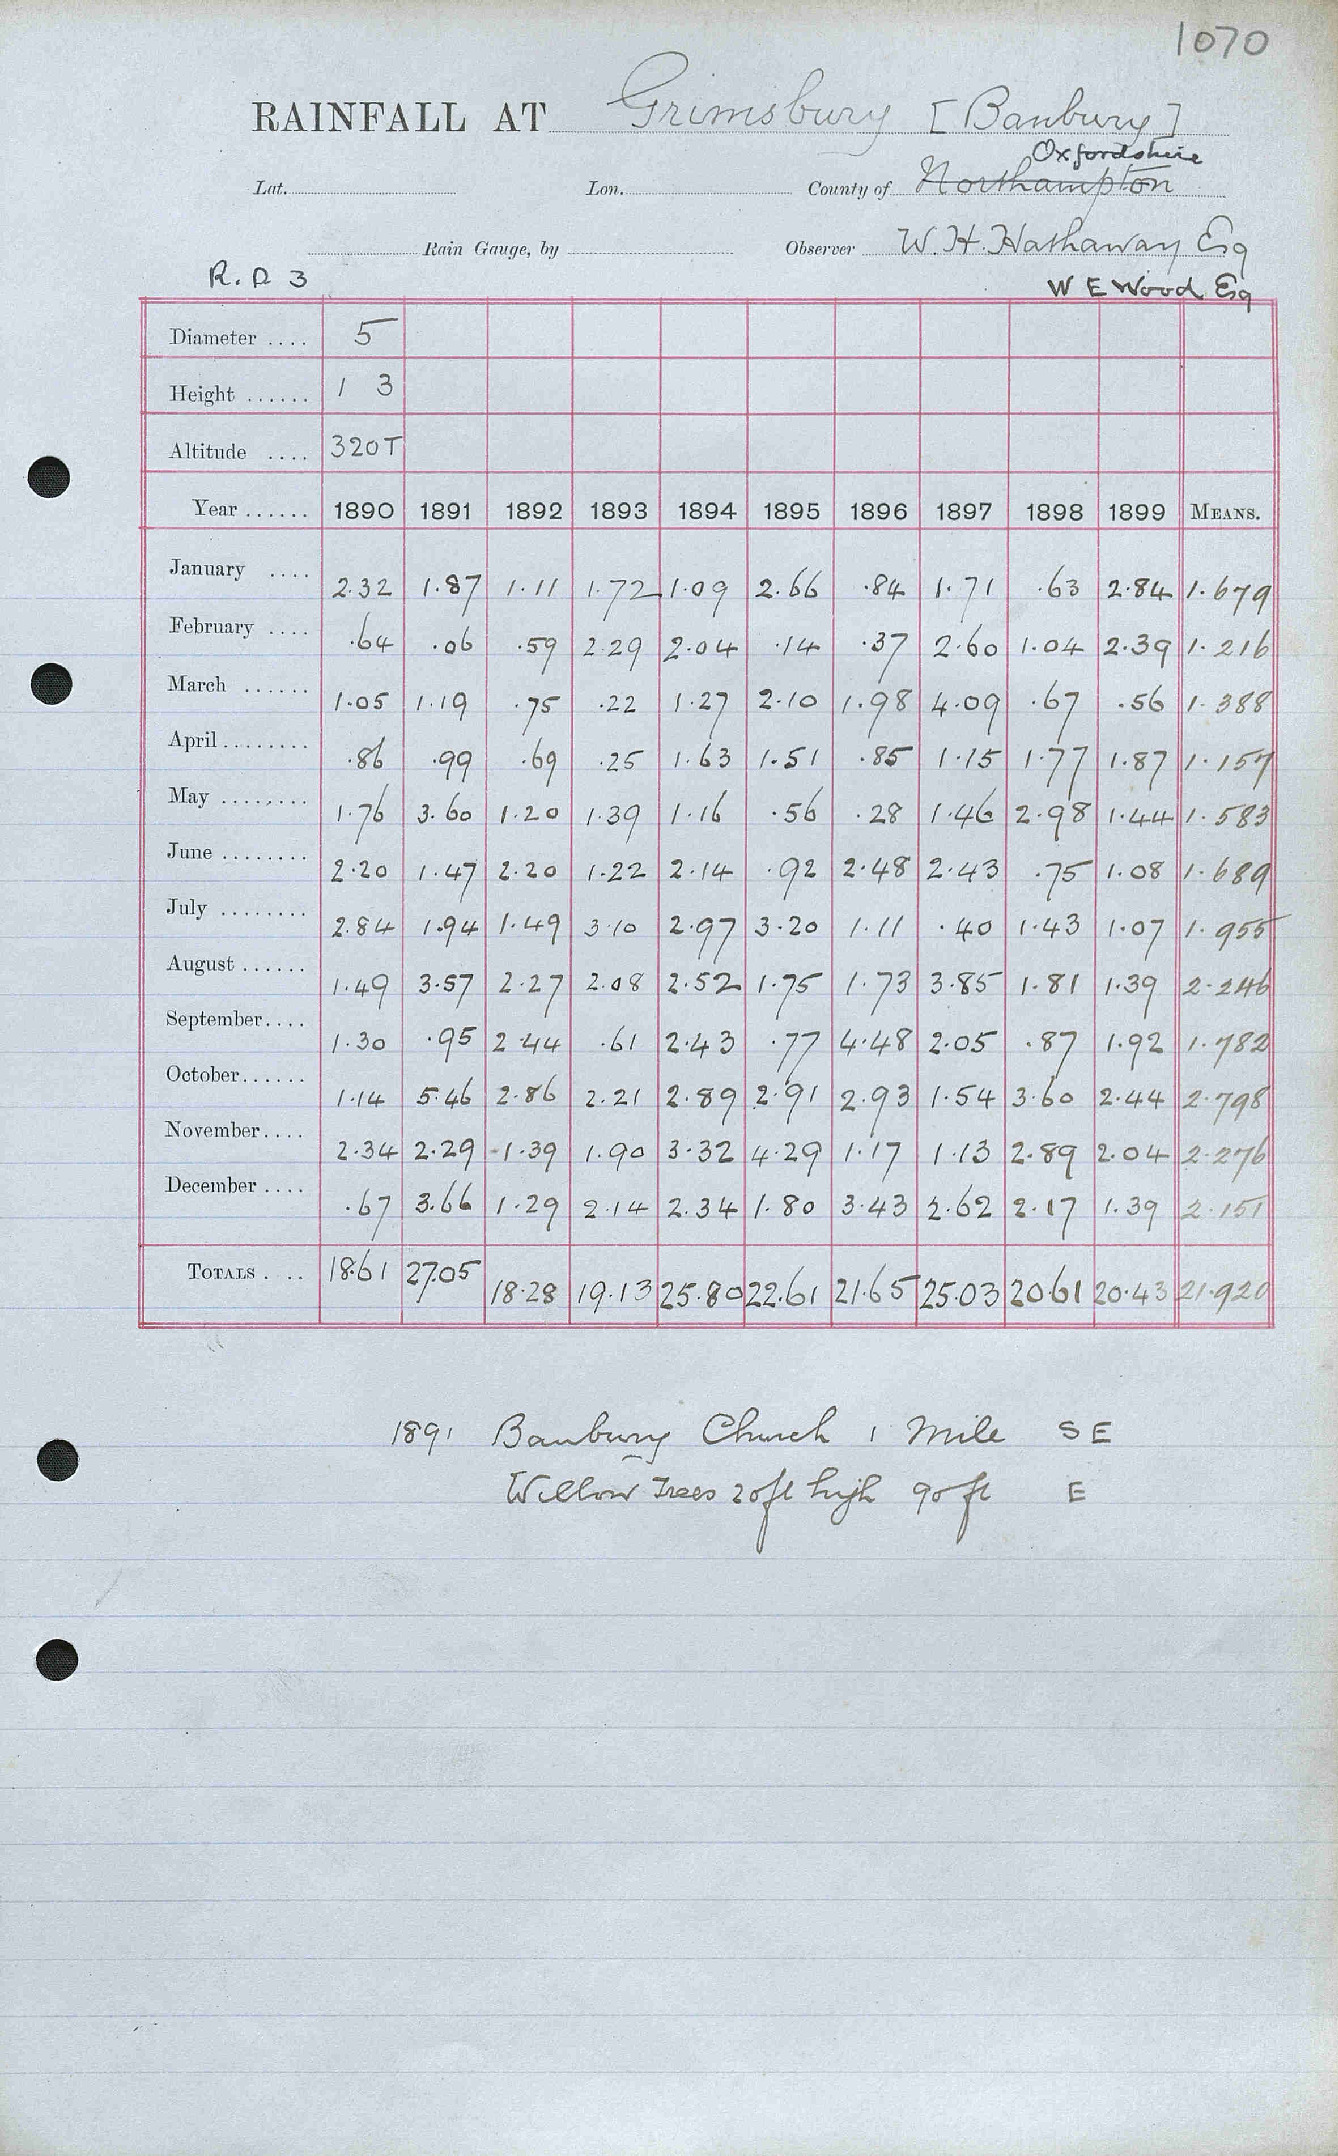 1070
RAINFALL AT Grimsbury [Banbury]
Oxfordshire
Lat. Lon. County of Northampton
Rain Gauge, by Observer W. H. Hathaway Esq
R. D 3 W E Wood Esq
Diameter .... 5
Height ...... 1 3
Altitude .... 320T
Year ...... 1890 1891 1892 1893 1894 1895 1896 1897 1898 1899 MEANS.
January .... 2.32 1.87 1.11 1.72 1.09 2.66 .84 1.71 .63 2.84 1.679
February .... .64 .06 .59 2.29 2.04 .14 .37 2.60 1.04 2.39 1.216
March ...... 1.05 1.19 .75 .22 1.27 2.10 1.98 4.09 .67 .56 1.388
April ........ .86 .99 .69 .25 1.63 1.51 .85 1.15 1.77 1.87 1.157
May ........ 1.76 3.60 1.20 1.39 1.16 .56 .28 1.46 2.98 1.44 1.583
June ........ 2.20 1.47 2.20 1.22 2.14 .92 2.48 2.43 .75 1.08 1.689
July ........ 2.84 1.94 1.49 3.10 2.97 3.20 1.11 .40 1.43 1.07 1.955
August ...... 1.49 3.57 2.27 2.08 2.52 1.75 1.73 3.85 1.81 1.39 2.246
September.... 1.30 .95 2.44 .61 2.43 .77 4.48 2.05 .87 1.92 1.782
October...... 1.14 5.46 2.86 2.21 2.89 2.91 2.93 1.54 3.60 2.44 2.798
November.... 2.34 2.29 1.39 1.90 3.32 4.29 1.17 1.13 2.89 2.04 2.276
December .... .67 3.66 1.29 2.14 2.34 1.80 3.43 2.62 2.17 1.39 2.151
TOTALS . .. 18.61 27.05 18.28 19.13 25.80 22.61 21.65 25.03 20.61 20.43 21.920
1891 Banbury Church 1 Mile S E
Willow Trees 20ft high 90 ft E